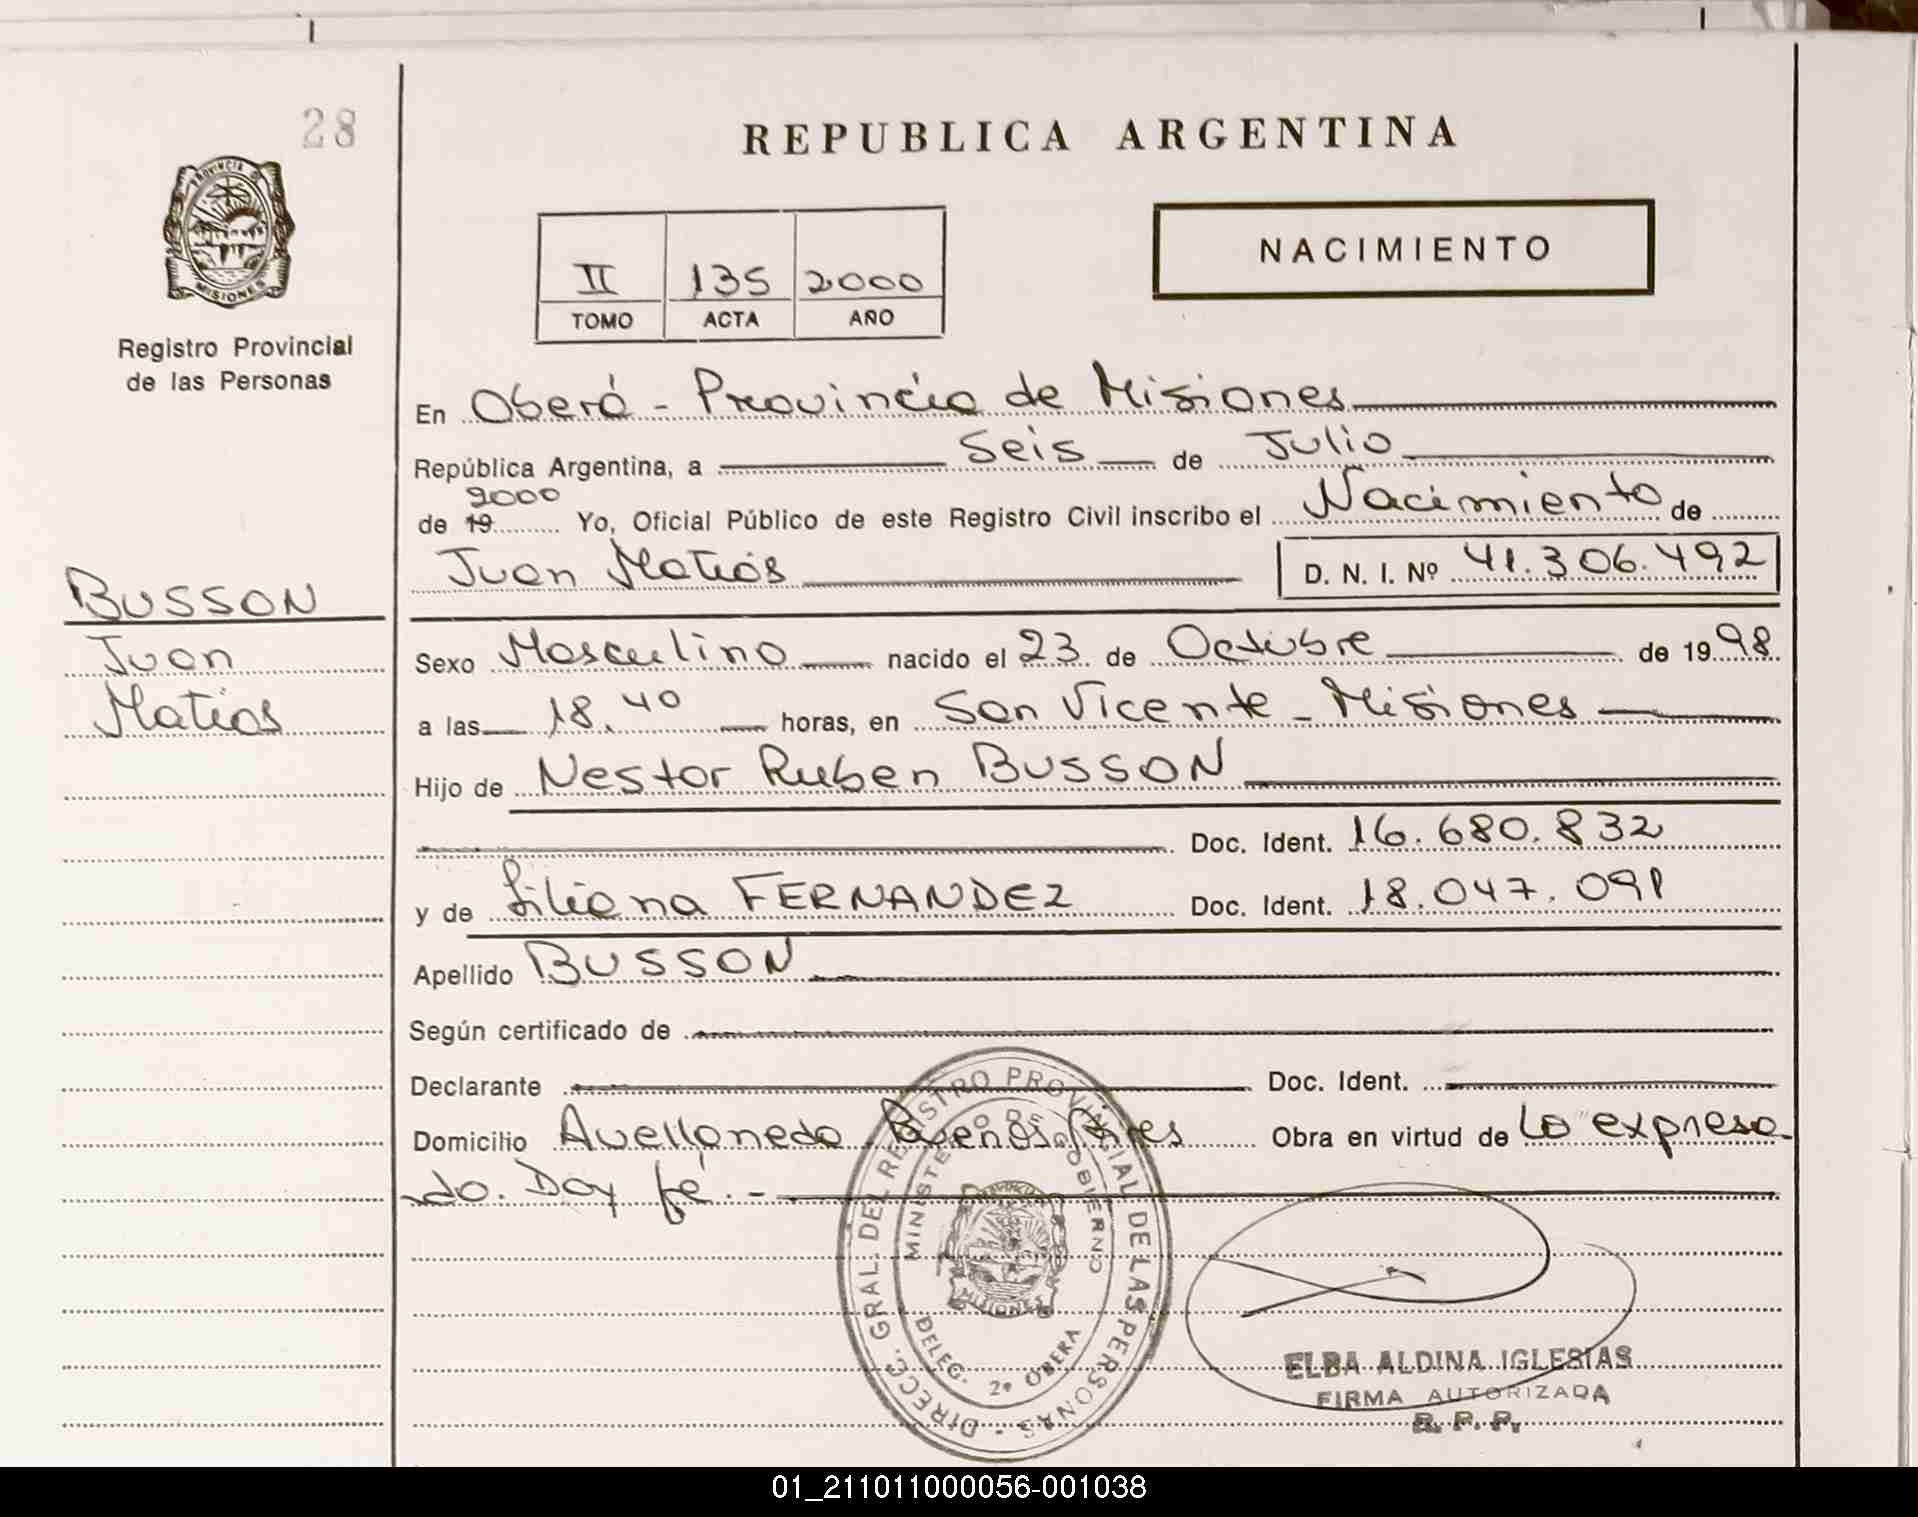 28
PROVINCIA DE
MISIONES
Registro Provincial
de las Personas
BUSSON
Juan
Matias
REPUBLICA ARGENTINA
II 135 2000
TOMO ACTA AÑO
NACIMIENTO
En Oberá - Provincia de Misiones
República Argentina, a Seis de Julio
2000
de 19 Yo, Oficial Público de este Registro Civil inscribo el Nacimiento de
Juan Matias D. N. I. Nº 41.306.492
Sexo Masculino nacido el 23 de Octubre de 1998
a las 18.40 horas, en San Vicente - Misiones
Hijo de Nestor Ruben BUSSON
Doc. Ident. 16.680.832
y de Liliana FERNANDEZ Doc. Ident. 18.047.091
Apellido BUSSON
Según certificado de
Declarante Doc. Ident.
Domicilio Avellaneda Buenos Aires Obra en virtud de Lo expresa
do. Doy fé.-
DIRECC. GRAL. DEL REGISTRO PROVINCIAL DE LAS PERSONAS -
MINISTERIO DE GOBIERNO
MISIONES
DELEG. 2ª OBERA
ELBA ALDINA IGLESIAS
FIRMA AUTORIZADA
R. P. P.
01_211011000056-001038